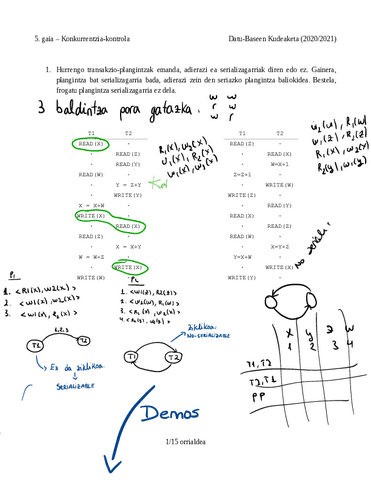 5. gaia – Konkurrentzia-kontrola Datu-Baseen Kudeaketa (2020/2021)
1. Hurrengo transakzio-plangintzak emanda, adierazi ea serializagarriak diren edo ez. Gainera,
plangintza bat serializagarria bada, adierazi zein den seriazko plangintza baliokidea. Bestela,
frogatu plangintza serializagarria ez dela.
3 baldintza para gatazka.
w w
r w
w r
T1 T2
READ(X) ·
· READ(Z)
· READ(Y)
READ(W) ·
· Y = Z+Y
· WRITE(Y)
X = X+W ·
WRITE(X) ·
· READ(X)
READ(Z) ·
· X = X+Y
W = W+Z ·
· WRITE(X)
WRITE(W) ·
R1(X), W2(X)
W1(X), R2(X)
W1(X), W2(X)
T1 T2
READ(Z) ·
· READ(X)
· W=X+1
Z=Z+1 ·
· WRITE(W)
WRITE(Z) ·
· READ(Y)
READ(X) ·
· READ(Z)
READ(W) ·
· X=Y+Z
Y=X+W ·
· WRITE(X)
WRITE(Y) ·
W2(W), R1(W)
W1(Z), R2(Z)
R1(X), W2(X)
R2(Y), W1(Y)
P1
1. <R1(X), W2(X)>
2. <W1(X), W2(X)>
3. <W1(X), R2(X)>
1. <W1(Z), R2(Z)>
2. <W2(W), R1(W)>
1,2,3
T1 T2
Ez da ziklikoa
SERIALIZABLE
T1 T2
Ziklikoa
NO-SERIALIZABLE
X Y Z W
1 2 3 4
T1, T2
T2, T1
PP
Demos
1/15 orrialdea